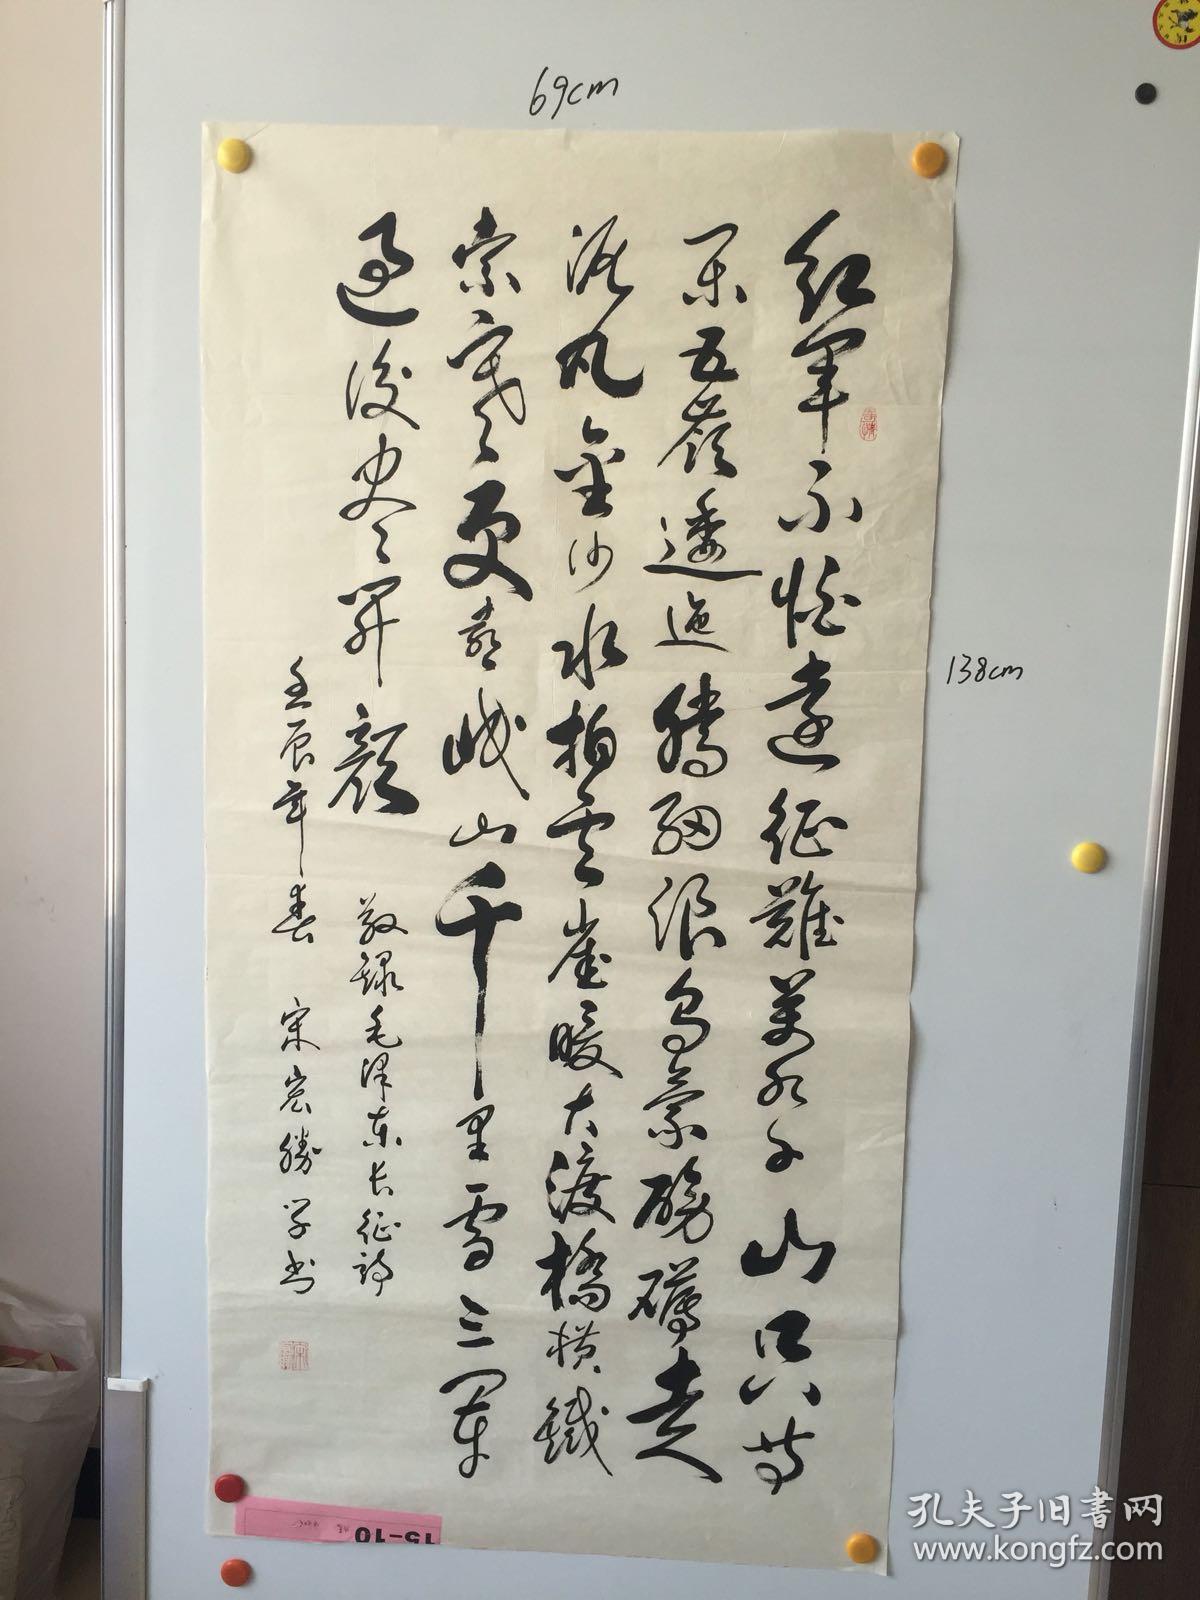 69cm
138cm
红军不怕远征难万水千山只等
闲五岭逶迤腾细浪乌蒙磅礴走
泥丸金沙水拍云崖暖大渡橋横鐵
索寒更喜岷山千里雪三军
過後尽开颜
敬録毛泽东长征诗
壬辰年春 宋宏勝学书
15-10
孔夫子旧書网
www.kongfz.com